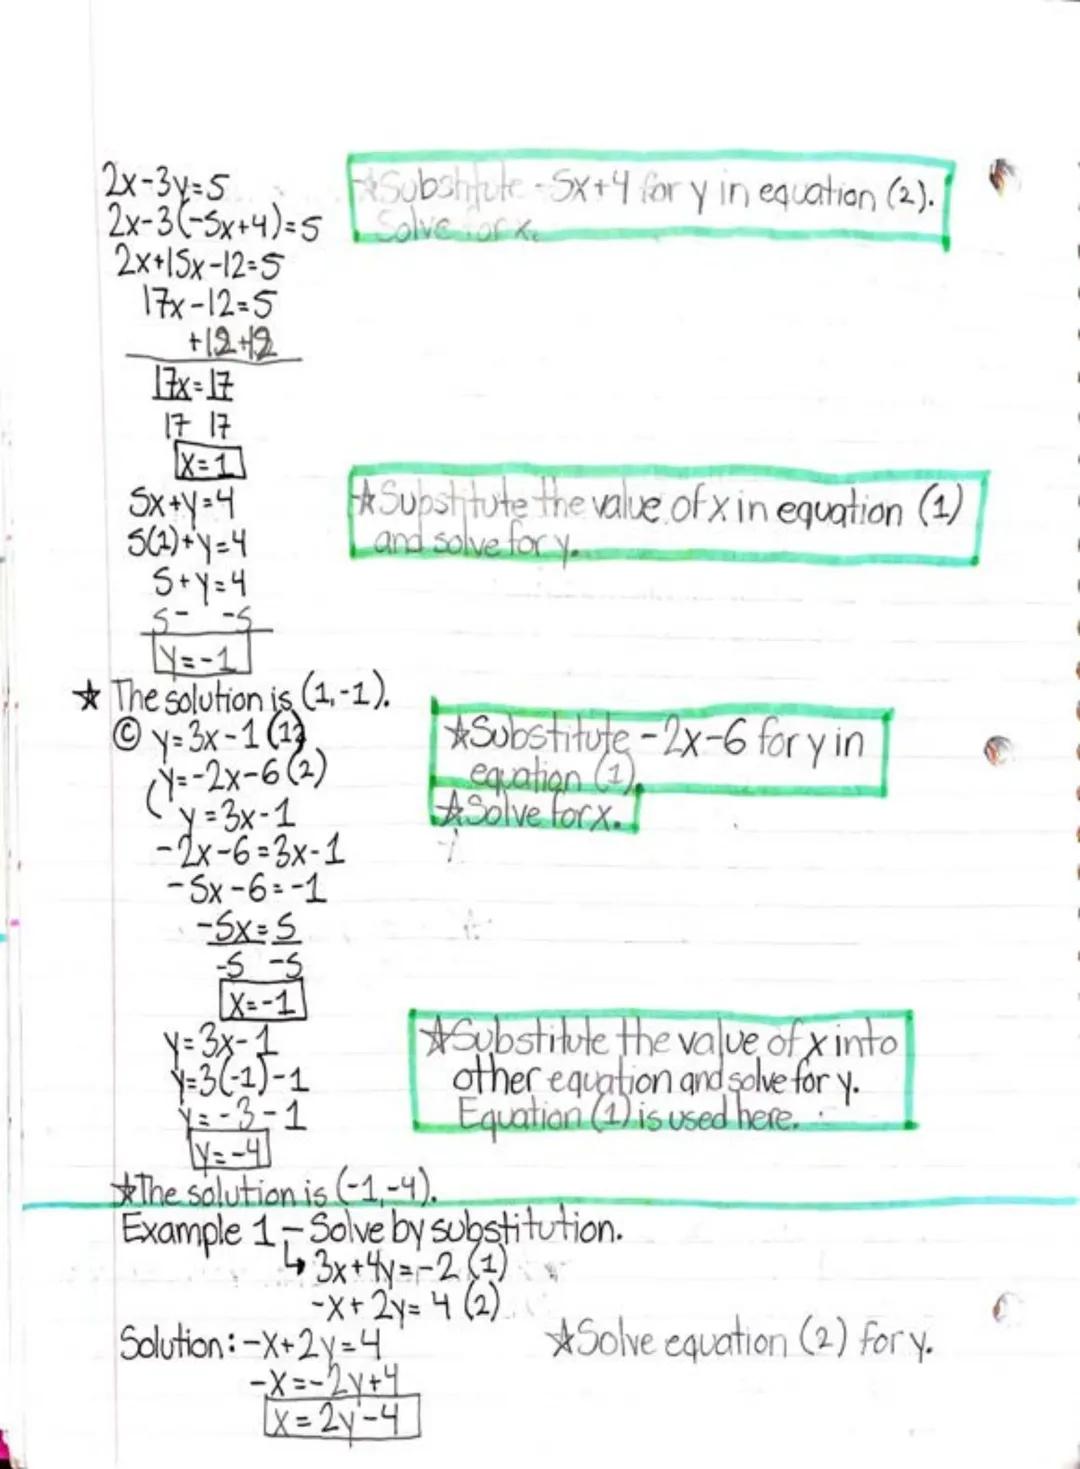 2x-3y=5
★Substitute -5x+4 for y in equation (2).
2x-3(-5x+4)=5
Solve for x.
2x+15x-12=5
17x-12=5
+12+12
17x=17
17 17
x=1
5x+y=4
★Substitute the value of x in equation (1)
5(1)+y=4
and solve for y.
5+y=4
5- -5
y=-1
★ The solution is (1,-1).
© y=3x-1 (1)
★Substitute -2x-6 for y in
y=-2x-6 (2)
equation (1).
y=3x-1
★Solve for x.
-2x-6=3x-1
-5x-6=-1
-5x=5
-5 -5
x=-1
y=3x-1
★Substitute the value of x into
y=3(-1)-1
other equation and solve for y.
y=-3-1
Equation (1) is used here.
y=-4
★The solution is (-1,-4).
Example 1-Solve by substitution.
↳ 3x+4y=-2 (1)
-x+2y=4 (2)
Solution: -x+2y=4
★Solve equation (2) for y.
-x=-2y+4
x=2y-4